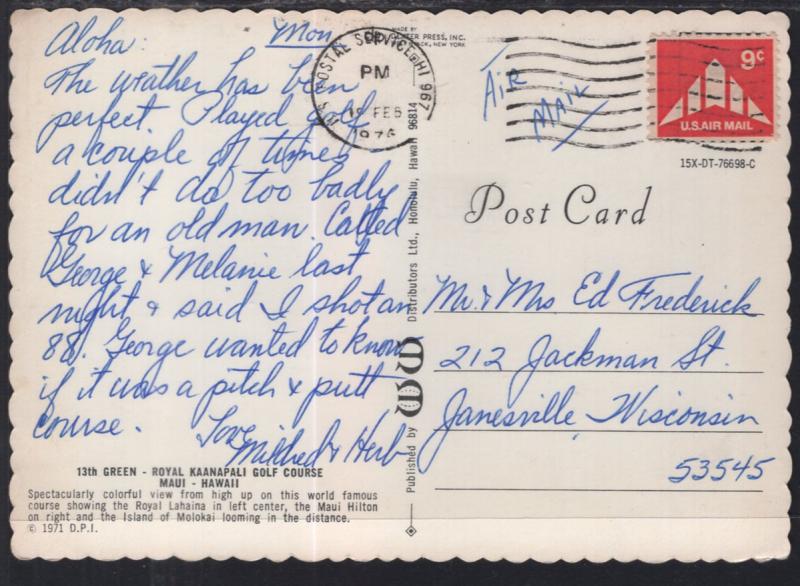 Aloha. Mon.
The weather has been
perfect. Played golf
a couple of times
didn't do too badly
for an old man. Called
George & Melanie last
night & said I shot an
88. George wanted to know
if it was a pitch & putt
course. Love
Mildred & Herb
13th GREEN - ROYAL KAANAPALI GOLF COURSE
MAUI - HAWAII
Spectacularly colorful view from high up on this world famous
course showing the Royal Lahaina in left center, the Maui Hilton
on right and the Island of Molokai looming in the distance.
© 1971 D.P.I.
MADE BY
PRESS, INC.
NEW YORK
U.S. POSTAL SERVICE HI 967
PM
FEB
1976
Published by
Distributors Ltd., Honolulu, Hawaii 96814
AIR
MAIL
9c
U.S. AIR MAIL
15X-DT-76698-C
Post Card
Mr. & Mrs Ed Frederick
212 Jackman St.
Janesville, Wisconsin
53545